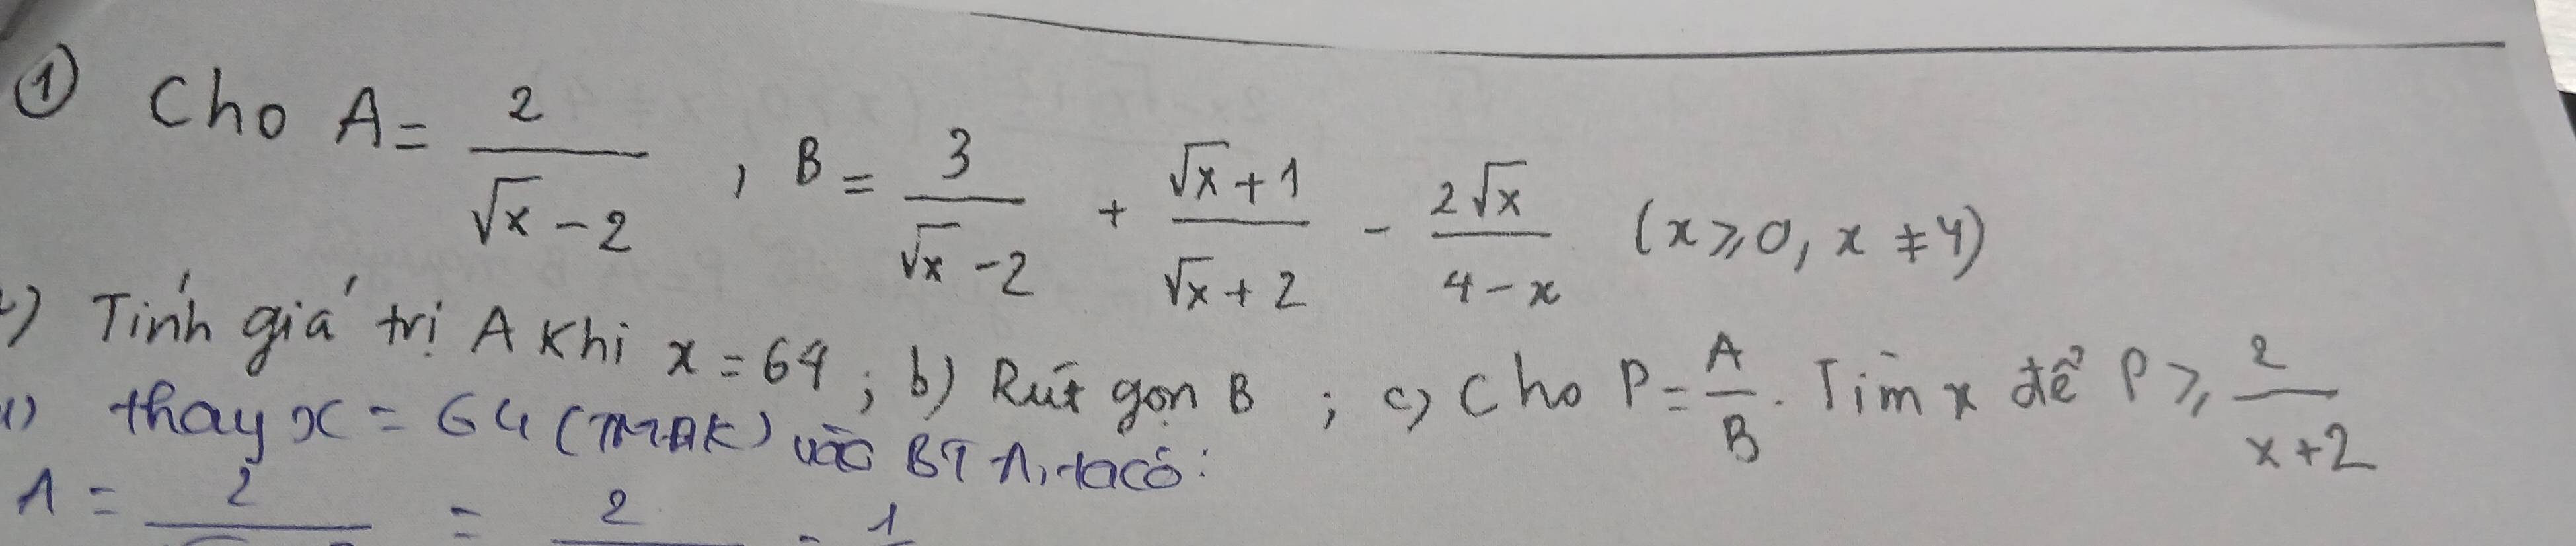 ① Cho A = 2/(√x - 2), B = 3/(√x - 2) + (√x + 1)/(√x + 2) - 2√x/(4 - x) (x ≥ 0, x ≠ 4)
) Tính giá trị A khi x = 64 ; b) Rút gọn B ; c) Cho P = A/B. Tìm x để P ≥ 2/(x+2)
) thay x = 64 (TMĐK) vào BT A, ta có:
A = 2 = 2 = 1